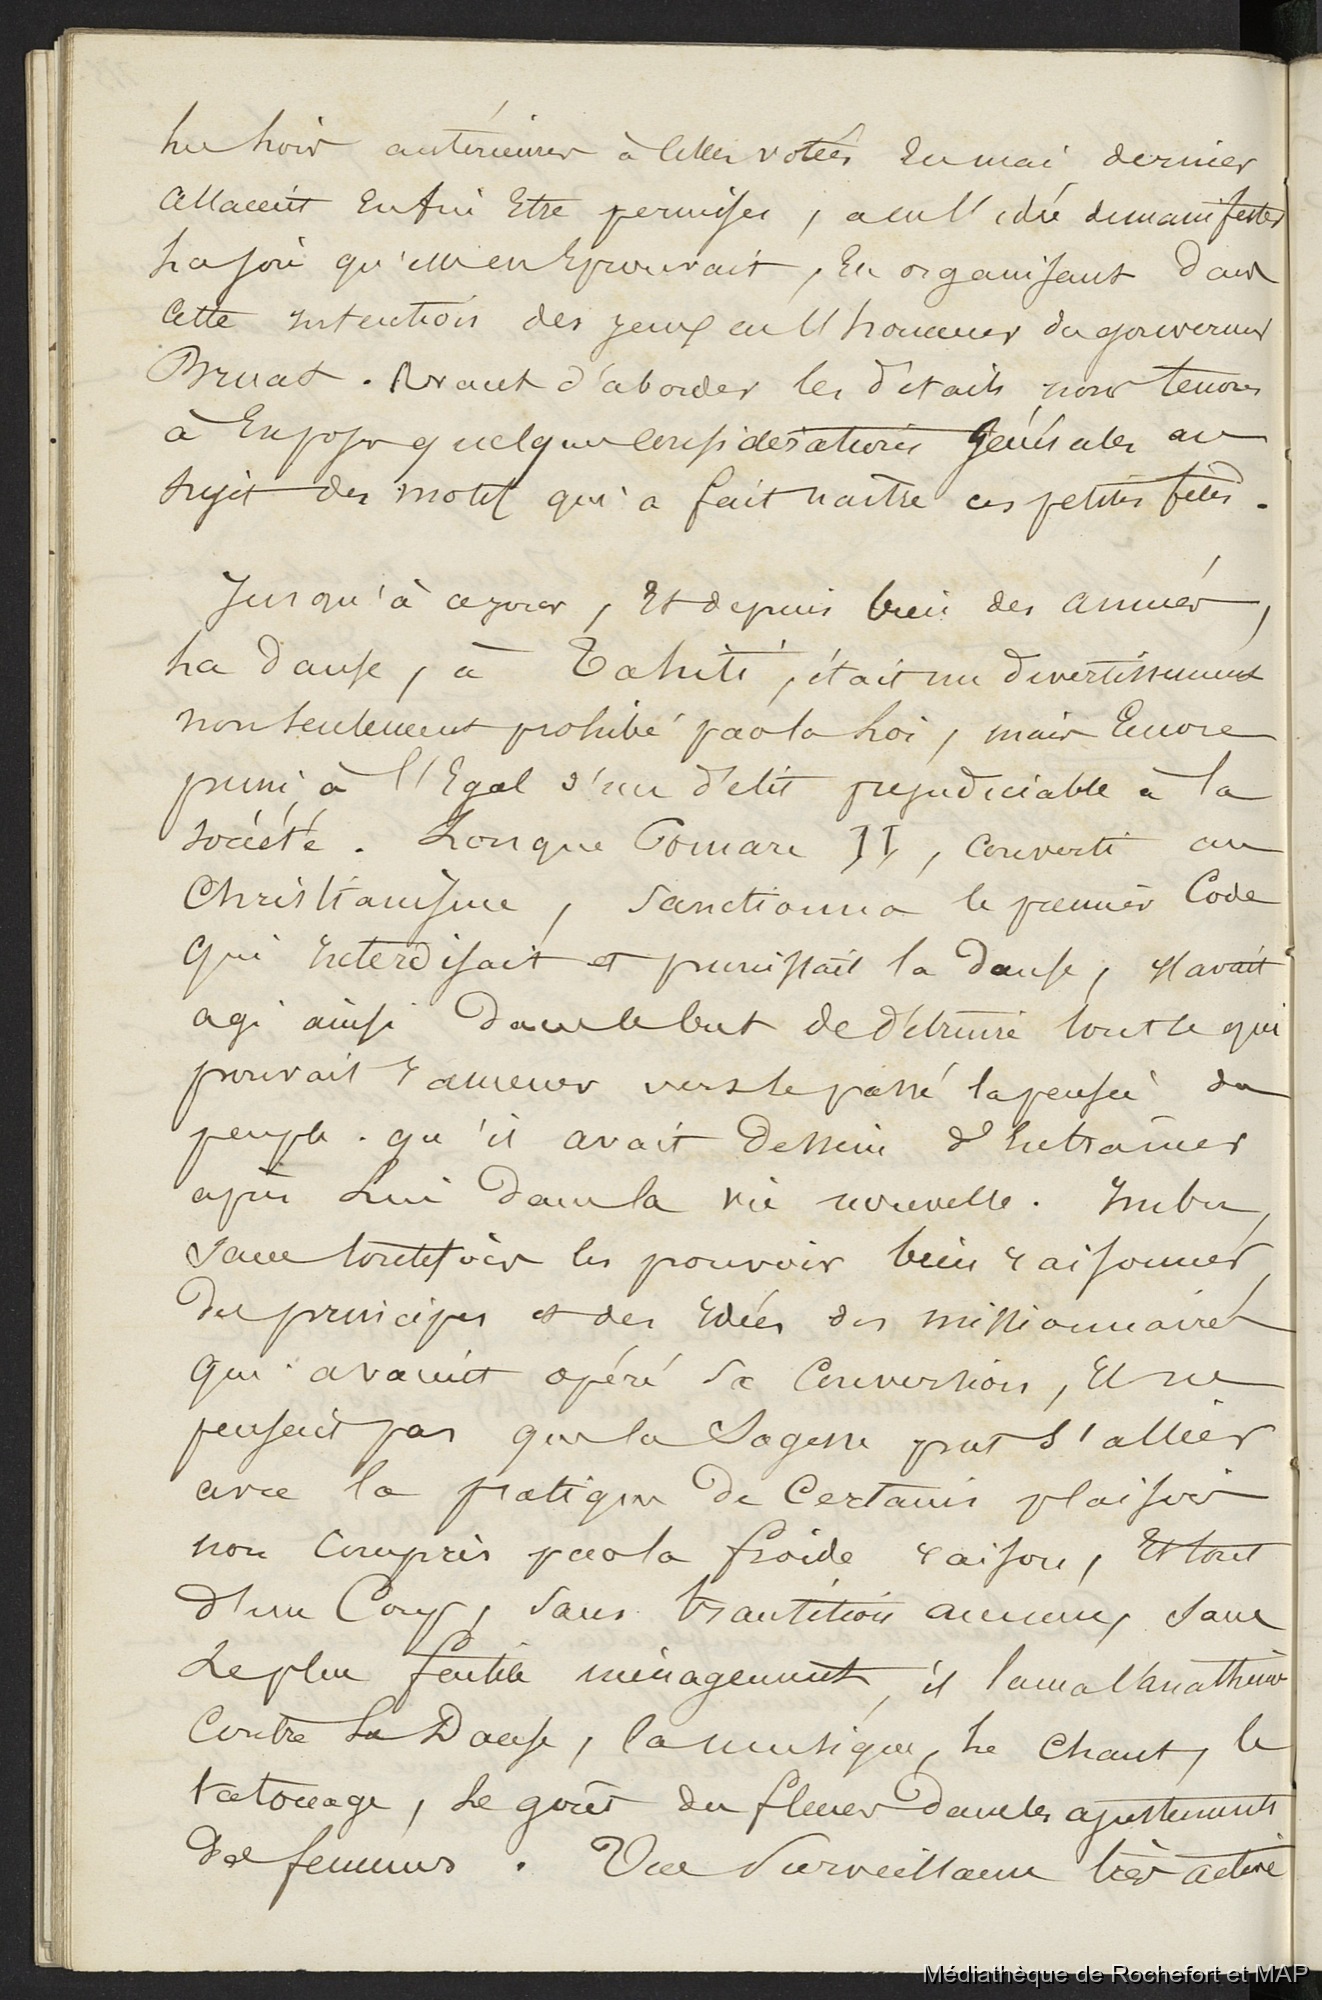 les lois antérieures à celles votées en mai dernier
allaient enfin être permises, a eu l'idée de manifester
la joie qu'elle en éprouvait, en organisant dans
cette intention des jeux en l'honneur du gouverneur
Bruat. Avant d'aborder les détails nous tenons
à exposer quelques considérations générales au
sujet des motifs qui a fait naître ces petites fêtes.
Jusqu'à ce jour, et depuis bien des années,
la danse, à Tahiti, était un divertissement
non seulement prohibé par la loi, mais encore
puni à l'égal d'un délit préjudiciable à la
société. Lorsque Pomare II, converti au
Christianisme, sanctionna le premier Code
qui interdisait et punissait la danse, il avait
agi ainsi dans le but de détruire tout ce qui
pouvait ramener vers le passé la pensée du
peuple. qu'il avait dessein d'entraîner
après lui dans la vie nouvelle. Imbu,
sans toutefois les pouvoir bien raisonner,
des principes et des idées des missionnaires
qui avaient opéré sa conversion, il ne
pensait pas que la sagesse put s'allier
avec la pratique de certains plaisirs
non compris par la froide raison, et tout
d'un coup, sans transition aucune, sans
le plus faible ménagement, il lança l'anathème
contre la Danse, la musique, le chant, le
tatouage, le goût des fleurs dans les ajustements
des femmes. Une surveillance très active
Médiathèque de Rochefort et MAP